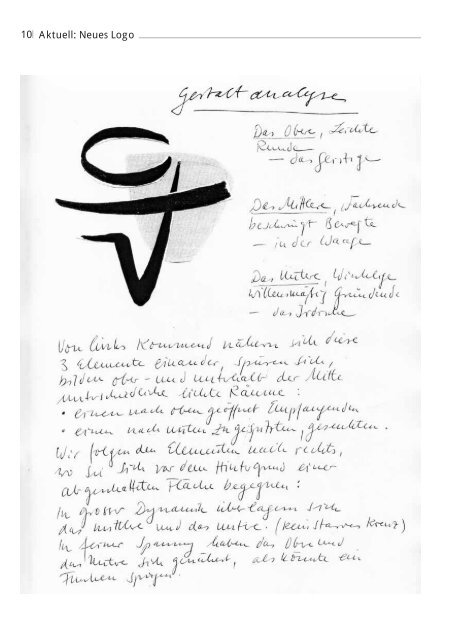 10| Aktuell: Neues Logo
Gestaltanalyse
Das Obere, Leichte
Runde
— das Geistige
Das Mittlere, Wachsende
beschwingt Bewegte
— in der Waage
Das Untere, Winklige
willensmäßig Gründende
— das Irdische
Von links kommend nähern sich diese
3 Elemente einander, spüren sich,
bilden ober- und unterhalb der Mitte
unterschiedliche lichte Räume:
• einen nach oben geöffnet Empfangenden
• einen nach unten zugespitzten, gesenkten.
Wir folgen den Elementen nach rechts,
wo sie sich vor dem Hintergrund einer
abgeschatteten Fläche begegnen:
In grosser Dynamik überlagern sich
das mittlere und das untere. (kein starres Kreuz)
In feiner Spannung haben das Obere und
das Untere sich genähert, als könnte ein
Funken springen.